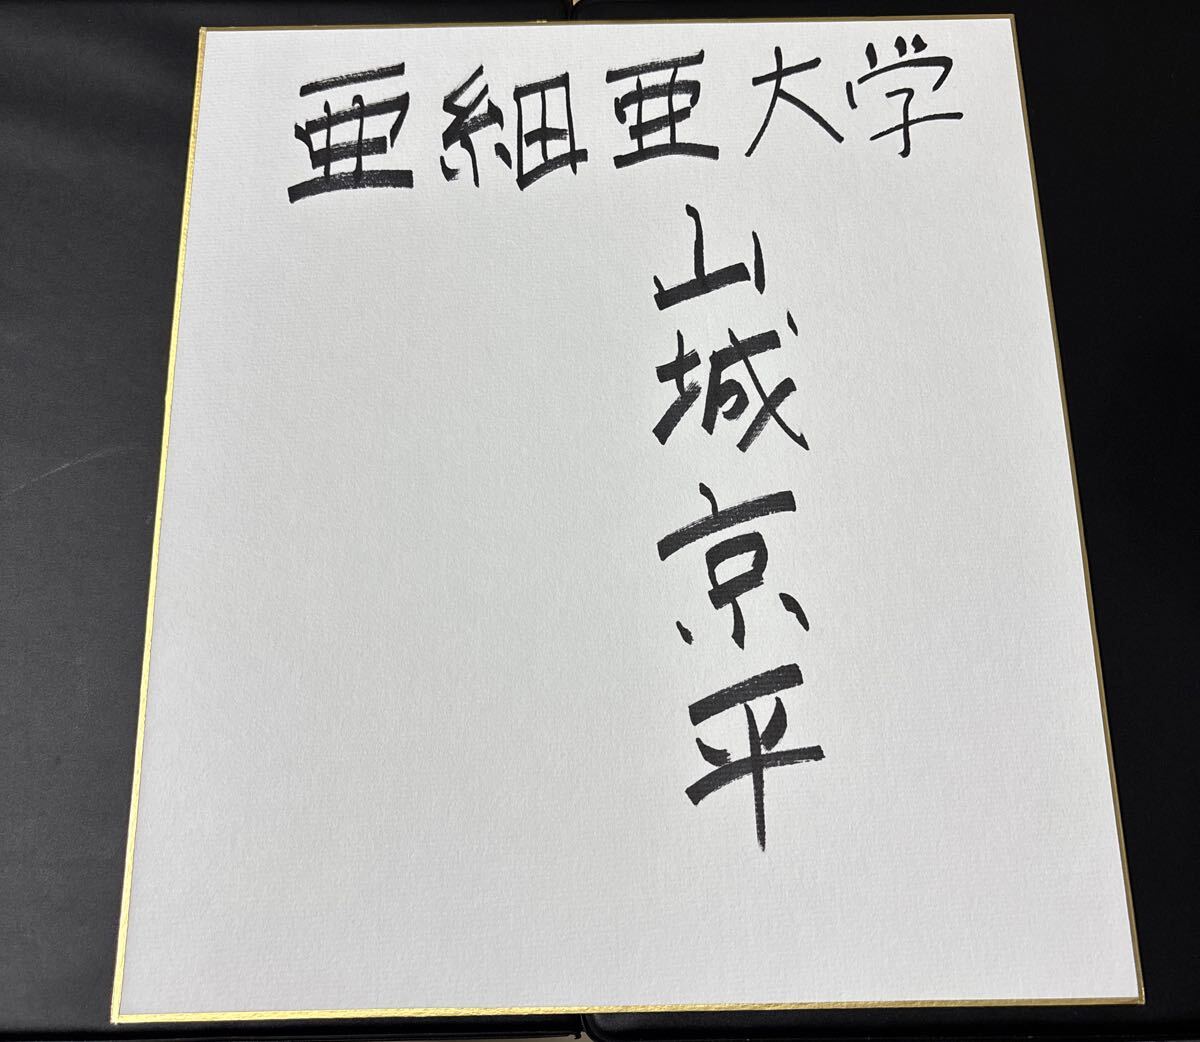 亜細亜大学
山城京平